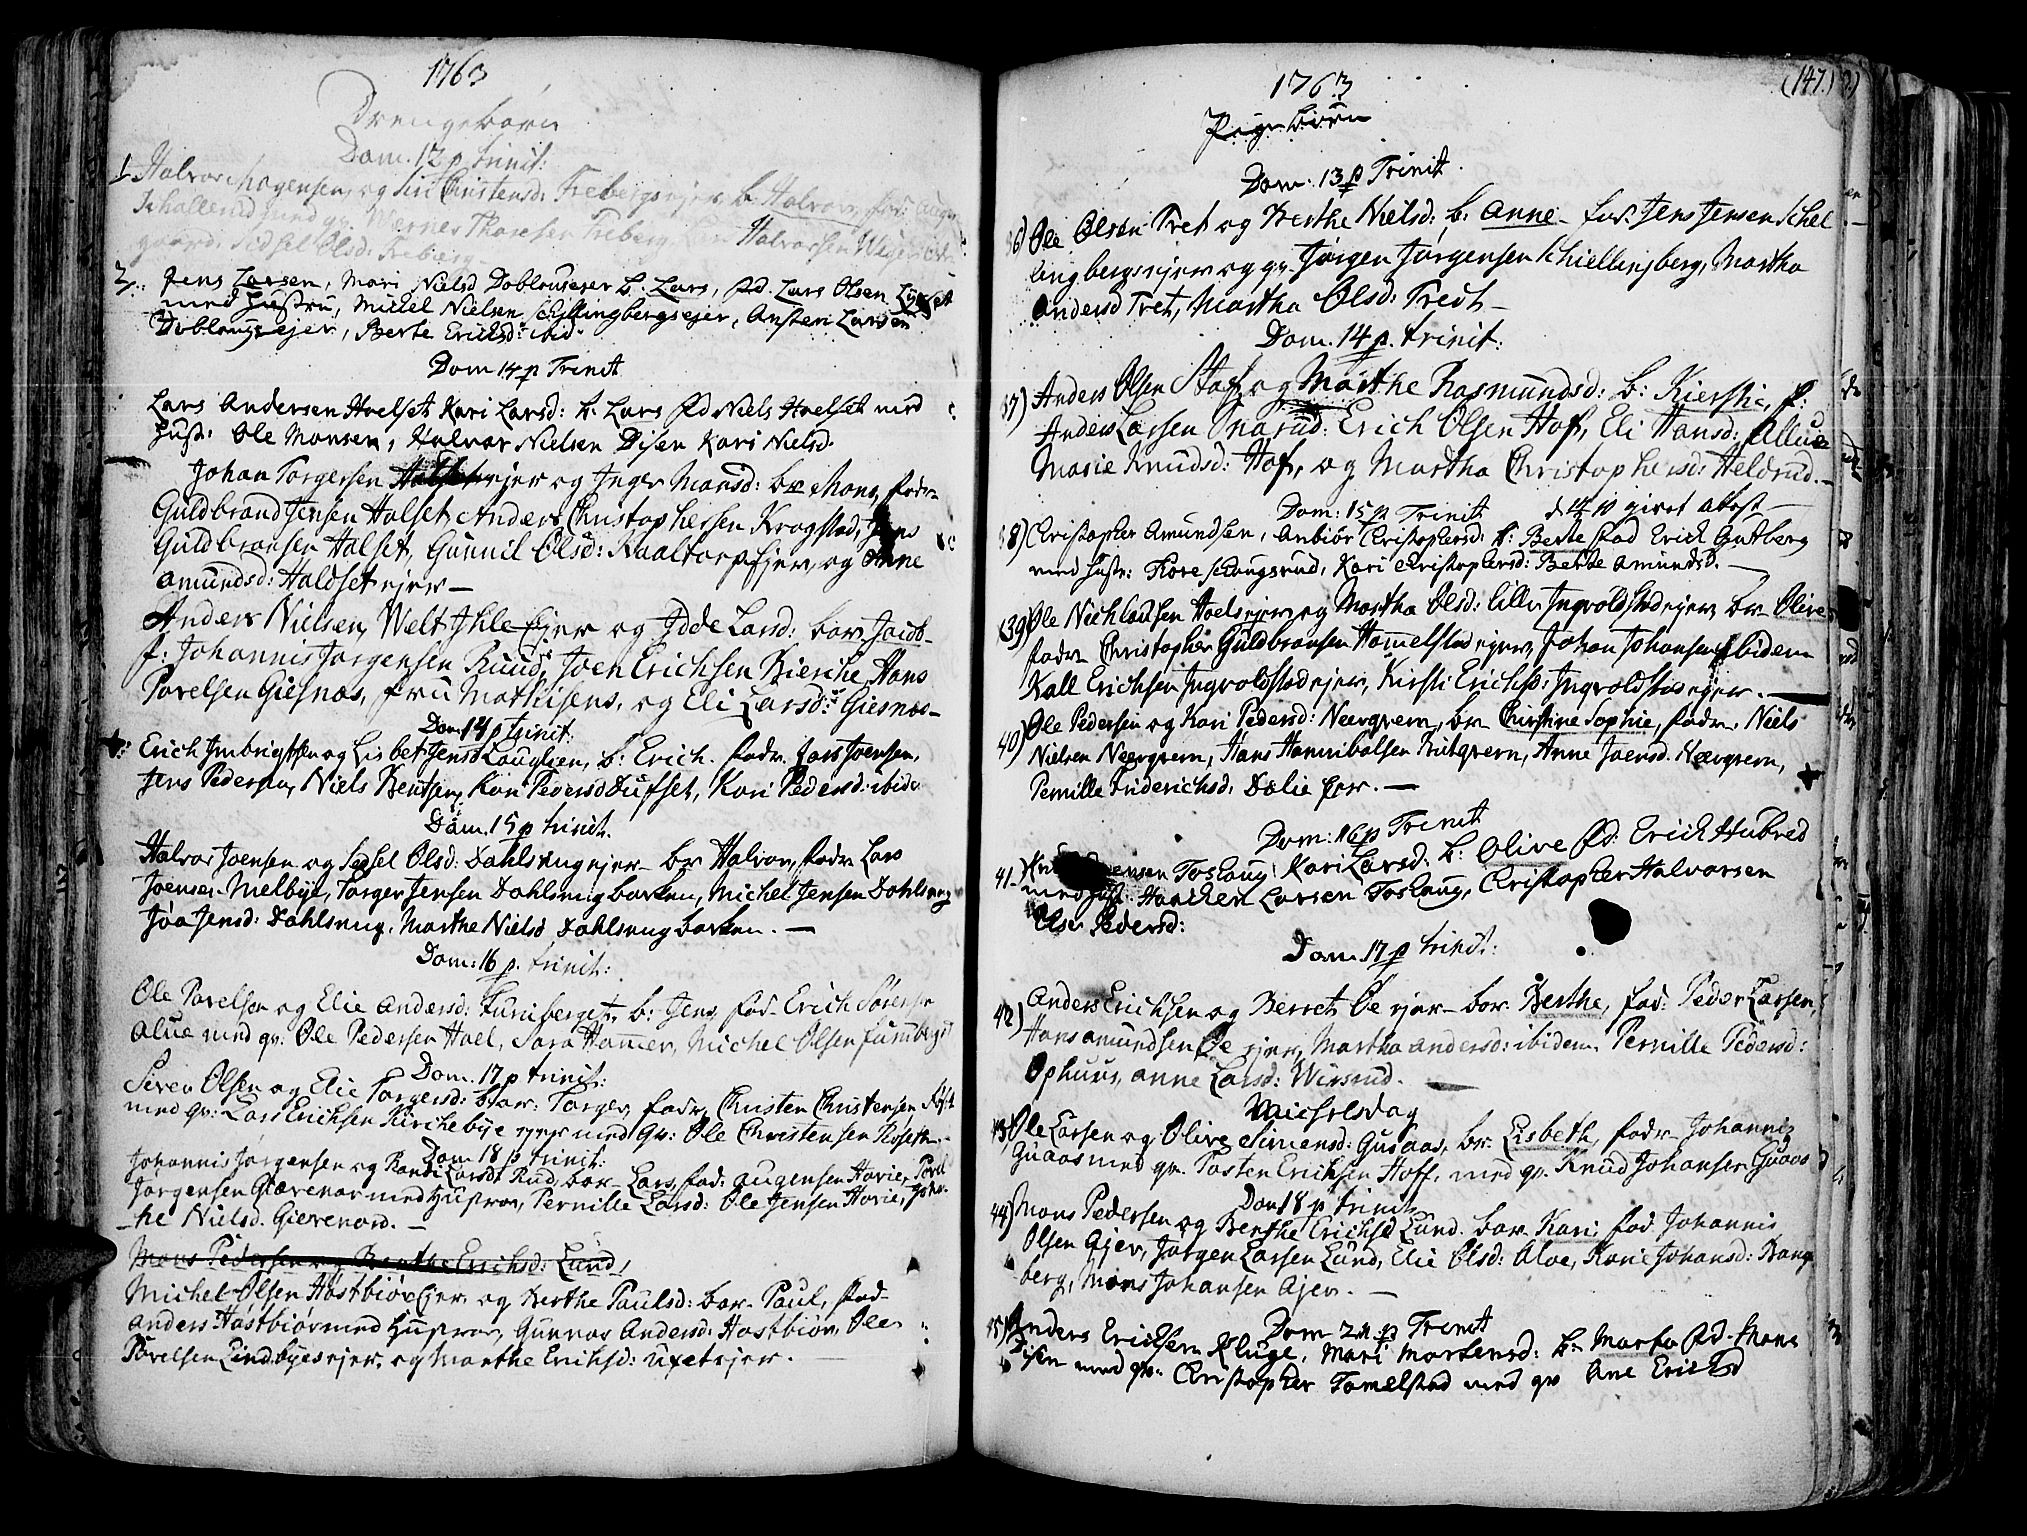 1763
Drengebørn
Dom. 12 p trinit:
1 Halvor Mogensen og Siri Christensd: Trebergsejer b. Halvor, fad:
Schallerud med qv. Thoresen Treberg, Halvorsen
gaard: Sidsel Olsd: Treberg
2. Jens Larsen, Mari Nielsd Doblougeyer b. Lars, fad. Lars Olsen
med Hustru, Michel Nielsen Schillingbergseyer, Ansten Larsen
Doblougseyer, Berte Ericksd: ibid.
Dom 14 p Trinit
Lars Andersen Hoelset Kari Larsd: b. Lars fad Niels Hoelset med
Hust: Ole Monsen, Halvor Nielsen Disen Kari Nielsd.
Johan Torgersen ejer og Inger Monsd: bar Mons, fadr
Guldbrand Jensen Halset, Anders Christophersen Krogstad, Jens
Guldbransen Halset, Gunnil Olsd: Kaaltorpsejer, og Anne
amundsd: Haldset ejer —
Anders Nielsen, Welt Ihle Ejer og Idde Larsd: bar Jacob
f: Johannis Jørgensen Ruud, Joen Erichsen Kierche, Hans
Povelsen Giesnæs, fru Mathisens, og Eli Larsd: Giesnæs—
Dom 14 p trinit:
Erich Imbrigtsen og Lisbet Jensd Lauglien, b: Erich. fadr. Lars Joensen,
Jens Pedersen, Niels Bentsen, Kari Pedersd Dufset, Kari Pedersd: ibid
Dom. 15 p trinit.
Halvor Joensen og Sidsel Olsd: Dahlseng ejer— bar Halvor, fadr Lars
Joensen Melbye, Torger Jensen Dahlseng barken, Michel Jensen Dahlseng
Jøa Jensd: Dahlseng, Marthe Nielsd Dahlseng barken. —
Dom: 16 p. trinit:
Ole Povelsen og Elie Andersd: Furuberget, b: Jens fad— Erich Sørensen
Alue med qv: Ole Pedersen Hoel, Sara Hammer, Michel Olsen furuberget
Dom. 17 p trinit:
Seren Olsen og Elie Torgersd: bar: Torger, fadr, Christen Christensen
med qv: Lars Erichsen Kirchebye ejer med qv: Ole Christensen Roseth—
Dom 18 p trinit:
Johannis Jørgensen og Randi Larsdt Rud, bar— Lars, fad: augensen Hovie, Povel
Jørgensen Giævenor med Hustroe, Pernille Larsd: Ole Jensen Hovie,
he Nielsd. Gievenord. —
Mons Pedersen og Berthe Erichsd: Lund,
Michel Olsen Hostbiør Ejer, og Berthe Paulsd: bar— Paul, fad—
Anders Hostbiør med Hustroe, Gunnor Andersd: Hostbiør, Ole
Povelsen Lindbyes ejer, og Marthe Erichsd: Uset ejer. —
1763
(147.)
Pige børn
Dom: 13 p Trinit.
36) Ole Olsen Tret og Berthe Nielsd: b: Anne— fad. Jens Jensen Schel
lingbergs ejer og qv. Jørgen Jørgensen Schiellingberg, Martha
Andersd Tret, Martha Olsd: Tredt—
Dom. 14 p. trinit:
37) Anders Olsen Stof og Marthe Rasmundsd: b: Kierstie, f:
Anders Larsen Snarud: Erich Olsen Hof, Eli Hansd: Allue
Marie Knudsd: Hof, og Martha Christophersd: Heldrud.—
Dom: 15 p Trinit
38) Christopher Amundsen, Anbiør Christophersd: b: Berte fad Erick Gutberg
med hust: Tore Schougsrud, Kari Christophersd: Berte Amundsd. —
39) Ole Nichlausen Hoels ejer og Martha Olsd: lille Ingvoldstad ejer, bar Olive
fadr Christopher Guldbransen Hommelstad ejer, Johan Johansen ibidem
Kall Erichsen Ingvoldstad ejer, Kirsti Erichsd: Ingvoldstad ejer. —
40) Ole Pedersen og Kari Pedersd: Neergvern, bar Christine Sophie, fadr. Niels
Nielsen Neergvern, Hans Hannibalsen Butqvern, Anne Joensd. Nærgvern,
Pernille Friderichsd: Dælie Ejer. —
Dom: 16 p Trinit
41.) Toskaug Kari Larsd: b: Olive fd: Erick Hubred
med hust. Haacken Larsen Toskaug, Christopher Halvorsen
Olse Pedersd:
Dom. 17 p trinit:
42) Anders Erichsen og Berret Øe ejer— bar. Berthe, fad: Peder Larsen,
Hans amundsen Øe ejer, Martha andersd: ibidem. Pernille Pedersd:
Ophuus, anne Larsd: Wirsrud. —
Michelsdag
43) Ole Larsen og Olive Simensd: Gusaas, bar. Lisbeth, fadr— Johannis
Guaas med qv. Tosten Erichsen Hoff, med qv. Knud Johansen Guaas
Dom 18 p trinit
44) Mons Pedersen og Berthe Erichsd Lund. bar. Kari, fad Johannis
Olsen Ajer, Jørgen Larsen Lund, Elie Olsd: Aloe, Karie Johansd: Bang
berg, Mons Johansen Ajer. —
Dom 21 p Trinit
45) Anders Ericksen Kluge, Mari Mortensd: b: Marta fd. Mons
Disen med qv. Christopher Tomelstad med qv Ane Ericksd